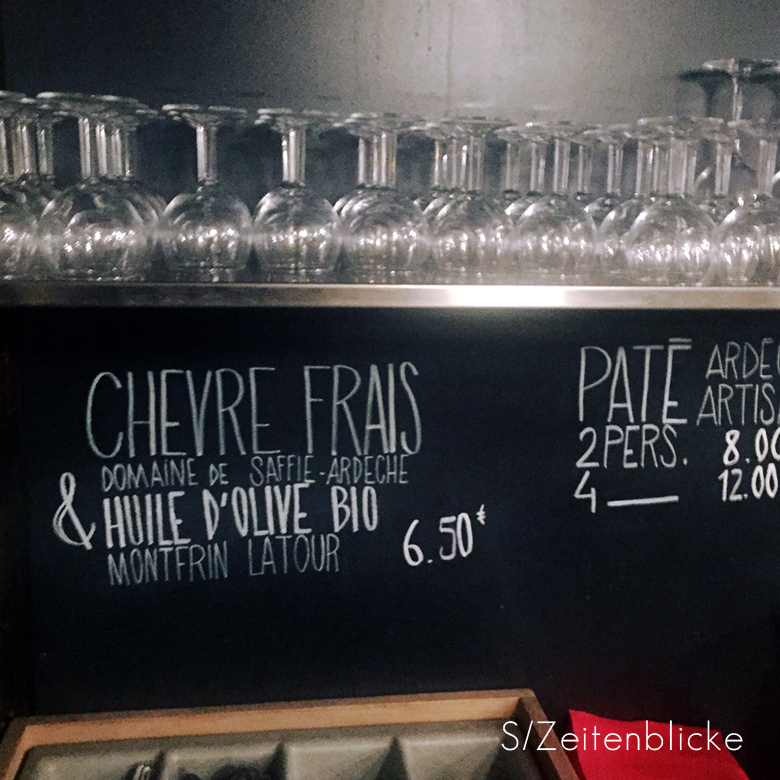 CHEVRE FRAIS
DOMAINE DE SAFFIE-ARDECHE
& HUILE D'OLIVE BIO
MONTFRIN LATOUR
6.50€
PATĒ
2 PERS. 8.00
4 — 12.00
S/Zeitenblicke